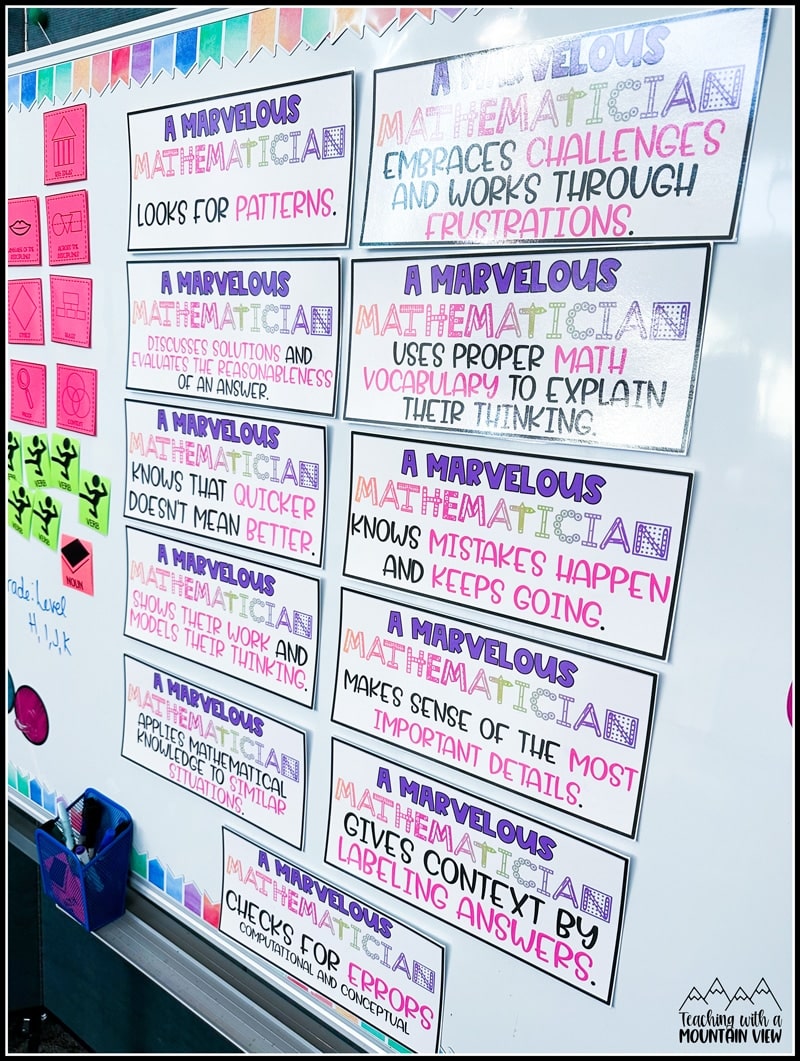 A MARVELOUS
MATHEMATICIAN
LOOKS FOR PATTERNS.
A MARVELOUS
MATHEMATICIAN
EMBRACES CHALLENGES
AND WORKS THROUGH
FRUSTRATIONS.
A MARVELOUS
MATHEMATICIAN
DISCUSSES SOLUTIONS AND
EVALUATES THE REASONABLENESS
OF AN ANSWER.
A MARVELOUS
MATHEMATICIAN
USES PROPER MATH
VOCABULARY TO EXPLAIN
THEIR THINKING.
A MARVELOUS
MATHEMATICIAN
KNOWS THAT QUICKER
DOESN'T MEAN BETTER.
A MARVELOUS
MATHEMATICIAN
KNOWS MISTAKES HAPPEN
AND KEEPS GOING.
A MARVELOUS
MATHEMATICIAN
SHOWS THEIR WORK AND
MODELS THEIR THINKING.
A MARVELOUS
MATHEMATICIAN
MAKES SENSE OF THE MOST
IMPORTANT DETAILS.
A MARVELOUS
MATHEMATICIAN
APPLIES MATHEMATICAL
KNOWLEDGE TO SIMILAR
SITUATIONS.
A MARVELOUS
MATHEMATICIAN
GIVES CONTEXT BY
LABELING ANSWERS.
A MARVELOUS
MATHEMATICIAN
CHECKS FOR ERRORS
COMPUTATIONAL AND CONCEPTUAL
VERB
VERB
VERB
VERB
VERB
NOUN
rade:Level
H, I, J, K
Teaching with a
MOUNTAIN VIEW